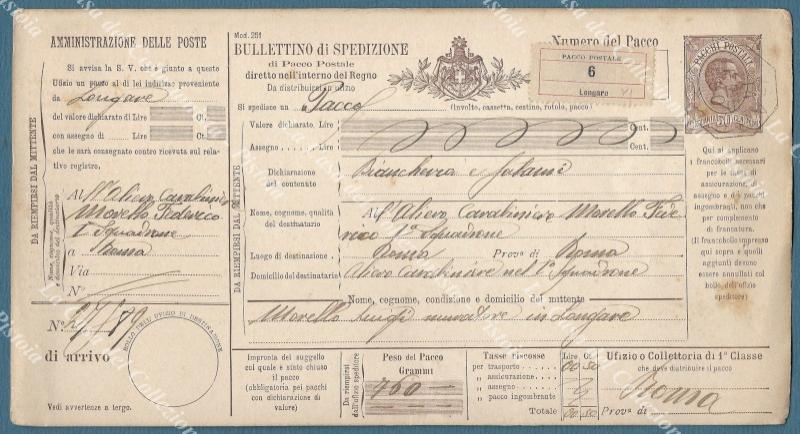 AMMINISTRAZIONE DELLE POSTE
Si avvisa la S. V. che è giunto a questo
Ufizio un pacco al di lei indirizzo proveniente
da Longare
del valore dichiarato di Lire Ct.
con assegno di Lire Ct.
che le sarà consegnato contro ricevuta sul rela-
tivo registro.
DA RIEMPIRSI DAL MITTENTE
Nome, cognome, qualità
e domicilio del destinatario
Al l'Alievo Carabiniere
Morello Federico
1a Squadrone
a Roma
Via
N°
N° 27/79
di arrivo
BOLLO DELL'UFIZIO DI DESTINAZIONE
Vedi avvertenze a tergo.
Mod. 251
BULLETTINO di SPEDIZIONE
di Pacco Postale
diretto nell'interno del Regno
Da distribuirsi in ufizio
Numero del Pacco
PACCO POSTALE
6
Longare
PACCHI POSTALI
Si spedisce un Pacco (Involto, cassetta, cestino, rotolo, pacco)
DA RIEMPIRSI DAL MITTENTE
Valore dichiarato. Lire Cent.
Assegno Lire Cent.
Dichiarazione
del contenuto
Biancheria e Salami
Nome, cognome, qualità
del destinatario
Al l'Alievo Carabiniere Morello Fede-
rico 1a Squadrone
Luogo di destinazione Roma Prov.a di Roma
Domicilio del destinatario Alievo Carabiniere nel 1° Squadrone
Nome, cognome, condizione e domicilio del mittente
Morello Luigi muratore in Longare
Qui si applicano
i francobolli necessari
per le tasse di
assicurazione, di
assegno e di pacchi
ingombranti, non che
per complemento di
francatura.
(Il francobollo impresso
qui sopra e quelli
aggiunti devono
essere annullati col
bollo dell'ufizio
speditore)
Impronta del suggello
col quale è stato chiuso
il pacco
(obbligatoria pei pacchi
con dichiarazione di
valore)
Da riempirsi
dall'ufizio speditore
Peso del Pacco
Grammi
760
Tasse riscosse Lire Ct.
per trasporto 00 50
» assicurazione
» assegno
» pacco ingombrante
Totale 00 50
Ufizio o Collettoria di 1a Classe
che deve distribuire il pacco
Roma
Prov.a di